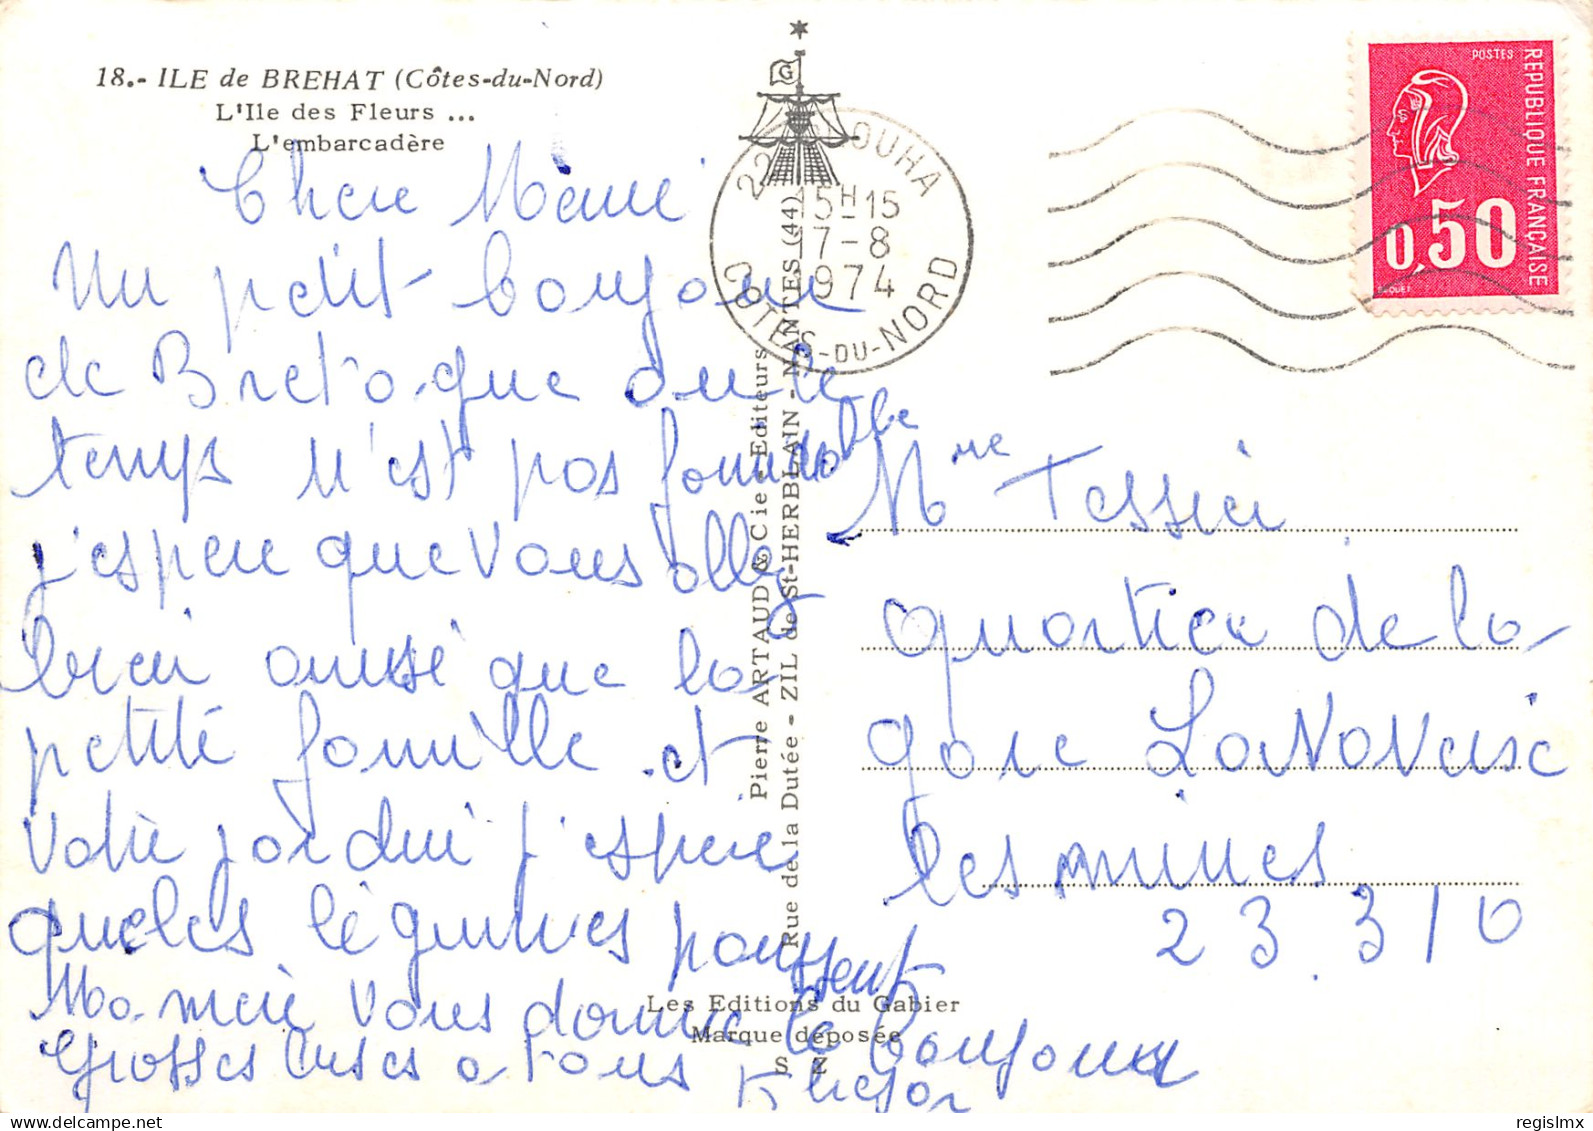 18.- ILE de BREHAT (Côtes-du-Nord)
L'Ile des Fleurs ...
L'embarcadère
Chere Mémé
Un petit bonjour
de Bretagne ou le
temps n'est pas formidable
j'espere que vous allez
bien ainsi que la
petite famille et
votre jardin j'espere
que les légumes poussent
Ma mere vous donne le bonjour
Grosses bises a tous
Pierre ARTAUD & Cie - Editeurs
Rue de la Dutée - ZIL de St-HERBLAIN - NANTES (44)
Les Editions du Gabier
Marque déposée
G
22 PLOUHA
15H15
17-8
1974
COTES-DU-NORD
POSTES
REPUBLIQUE FRANÇAISE
0,50
Mme Tessier
quartier de la
gare La
les mines
23310
regislmx